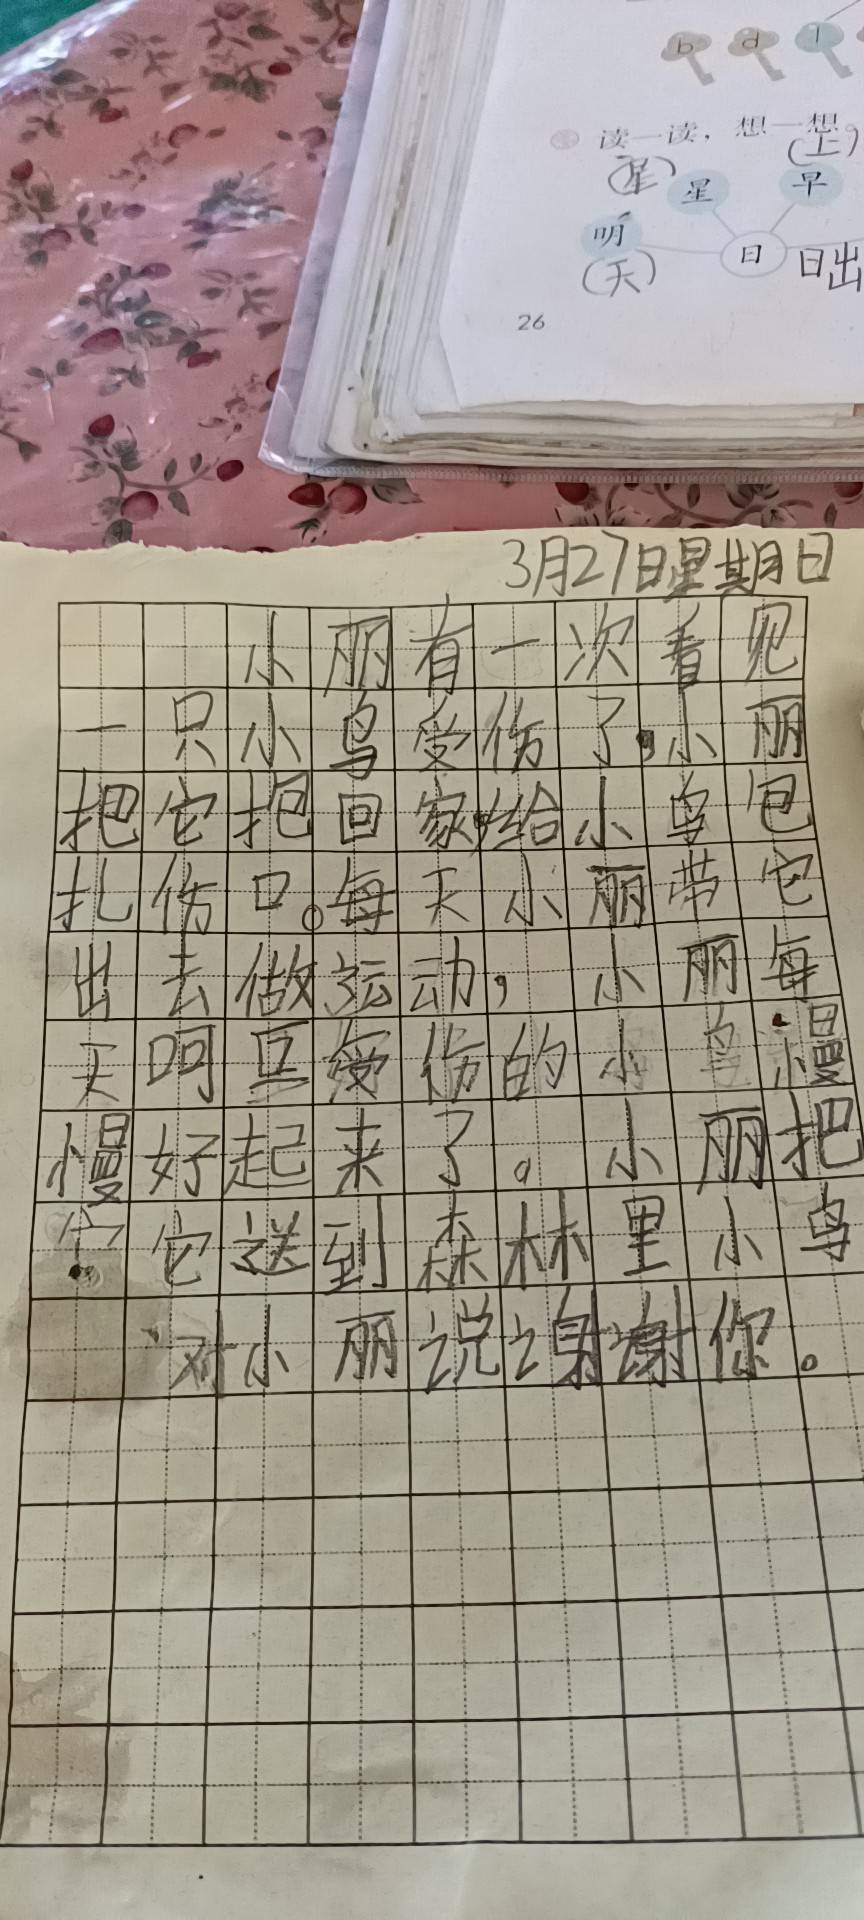 b d l
读一读，想一想。
(星) (上)
星 早
明 日 日出
(天)
26
3月27日星期日
小丽有一次看见
一只小鸟受伤了,小丽
把它抱回家,给小鸟包
扎伤口。每天小丽带它
出去做运动，小丽每
天呵 受伤的小鸟慢
慢好起来了。小丽把
它送到森林里小鸟
对小丽说谢谢你。